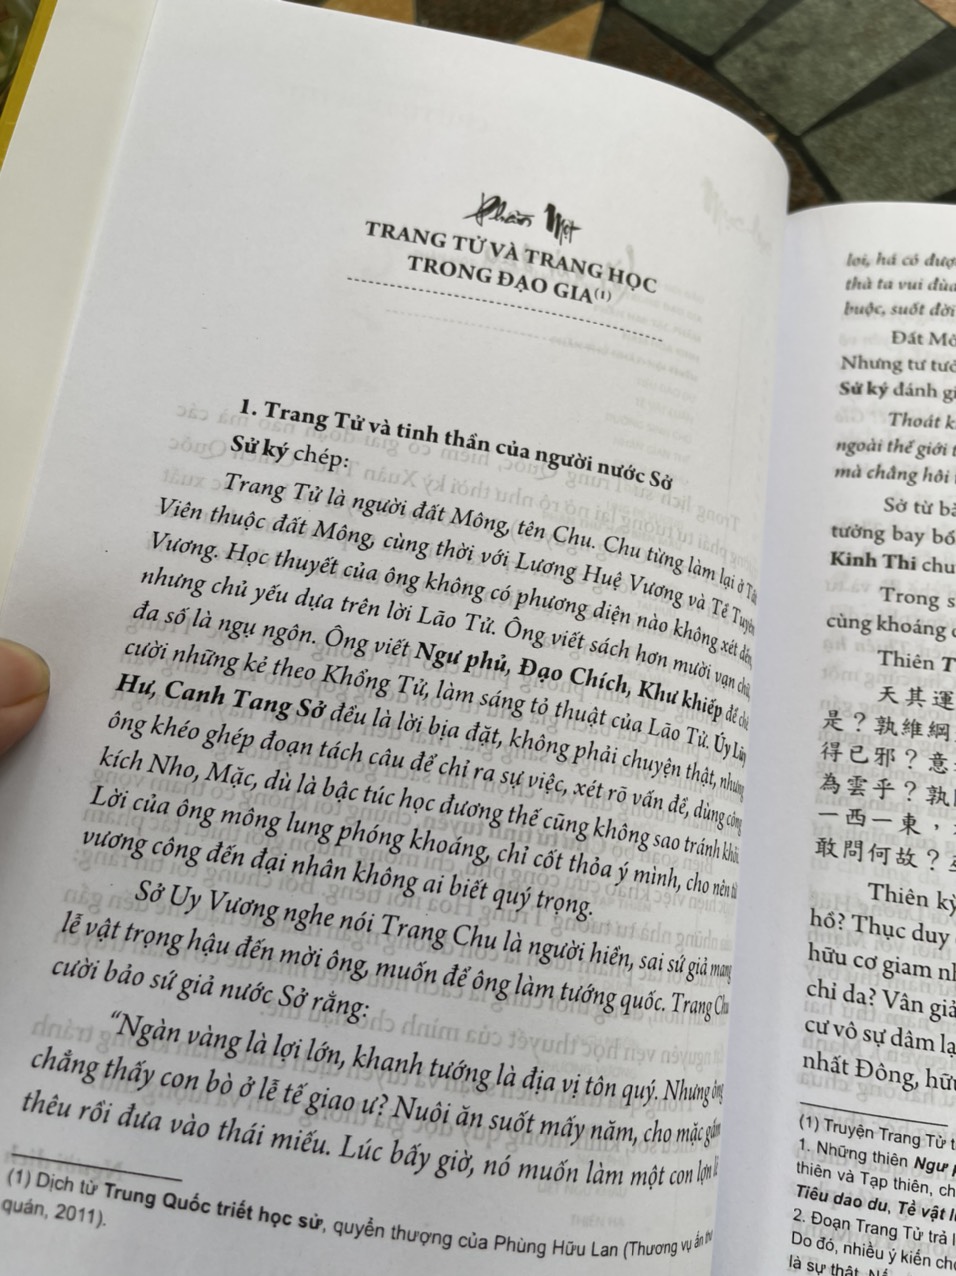 Phần Một
TRANG TỬ VÀ TRANG HỌC
TRONG ĐẠO GIA(1)
1. Trang Tử và tinh thần của người nước Sở
Sử ký chép:
Trang Tử là người đất Mông, tên Chu. Chu từng làm lại ở Tất
Viên thuộc đất Mông, cùng thời với Lương Huệ Vương và Tề Tuyên
Vương. Học thuyết của ông không có phương diện nào không xét đến,
nhưng chủ yếu dựa trên lời Lão Tử. Ông viết sách hơn mười vạn chữ,
đa số là ngụ ngôn. Ông viết Ngư phủ, Đạo Chích, Khư khiếp để chê
cười những kẻ theo Khổng Tử, làm sáng tỏ thuật của Lão Tử. Úy Lũy
Hư, Canh Tang Sở đều là lời bịa đặt, không phải chuyện thật, nhưng
ông khéo ghép đoạn tách câu để chỉ ra sự việc, xét rõ vấn đề, dùng công
kích Nho, Mặc, dù là bậc túc học đương thế cũng không sao tránh khỏi.
Lời của ông mông lung phóng khoáng, chỉ cốt thỏa ý mình, cho nên từ
vương công đến đại nhân không ai biết quý trọng.
Sở Uy Vương nghe nói Trang Chu là người hiền, sai sứ giả mang
lễ vật trọng hậu đến mời ông, muốn để ông làm tướng quốc. Trang Chu
cười bảo sứ giả nước Sở rằng:
“Ngàn vàng là lợi lớn, khanh tướng là địa vị tôn quý. Nhưng ông
chẳng thấy con bò ở lễ tế giao ư? Nuôi ăn suốt mấy năm, cho mặc gấm
thêu rồi đưa vào thái miếu. Lúc bấy giờ, nó muốn làm một con lợn
(1) Dịch từ Trung Quốc triết học sử, quyển thượng của Phùng Hữu Lan (Thương vụ ấn thư
quán, 2011).
lơi, há có đượ
thà ta vui đùa
buộc, suốt đời
Đất Mô
Nhưng tư tưở
Sử ký đánh gi
Thoát k
ngoài thế giới t
mà chẳng hôi
Sở từ bả
tưởng bay bổ
Kinh Thi chu
Trong s
cùng khoáng
Thiên T
天其運
是？孰維綱
得已邪？意
為雲乎？孰
一西一東，
敢問何故？
Thiên kỳ
hồ? Thục duy
hữu cơ giam nh
chỉ da? Vân giả
cư vô sự dâm lạ
nhất Đông, hữu
(1) Truyện Trang Tử t
1. Những thiên Ngư p
thiên và Tạp thiên, ch
Tiêu dao du, Tề vật l
2. Đoạn Trang Tử trả l
Do đó, nhiều ý kiến cho
là sự thật.